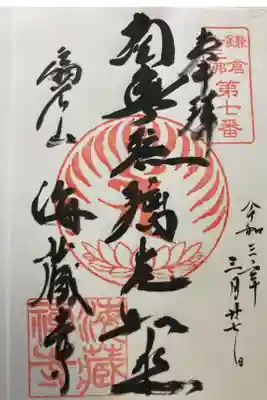 鎌倉
十三佛
第七番
奉拝
南無瑠璃光如来
扇谷山
海蔵寺
令和三年
三月廿七日
海蔵
禅寺